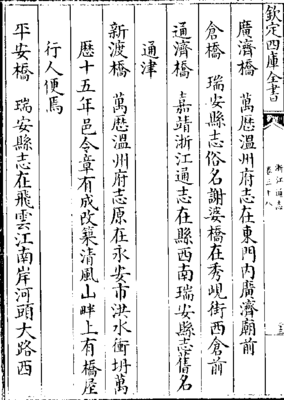 欽定四庫全書
浙江通志
卷三十八
廣濟橋 萬厯溫州府志在東門内廣濟廟前
倉橋 瑞安縣志俗名謝婆橋在秀峴街西倉前
通濟橋 嘉靖浙江通志在縣西南瑞安縣志舊名
通津
新渡橋 萬厯溫州府志原在永安市洪水衝坍萬
厯十五年邑令章有成改築清風山畔上有橋屋
行人便焉
平安橋 瑞安縣志在飛雲江南岸河頭大路西